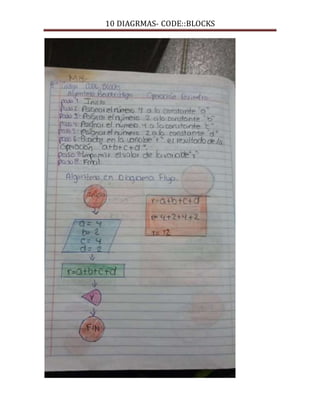 10 DIAGRMAS- CODE::BLOCKS
Code Blocks
paso 1: Inicio
paso 2: Asignar el número 4 a la constante "a"
paso 3: Asignar el número 2 a la constante "b"
paso 4: Asignar el número 4 a la constante "c"
paso 5: Asignar el número 2 a la constante "d"
en la variable "r" el resultado de la
Operación a+b+c+d
el valor de la variable "r"
Final
Algoritmo en Diagrama Flujo.
Inicio
a = 4
b = 2
c = 4
d = 2
r=a+b+c+d
r
FIN
r=a+b+c+d
r=4+2+4+2
r=12